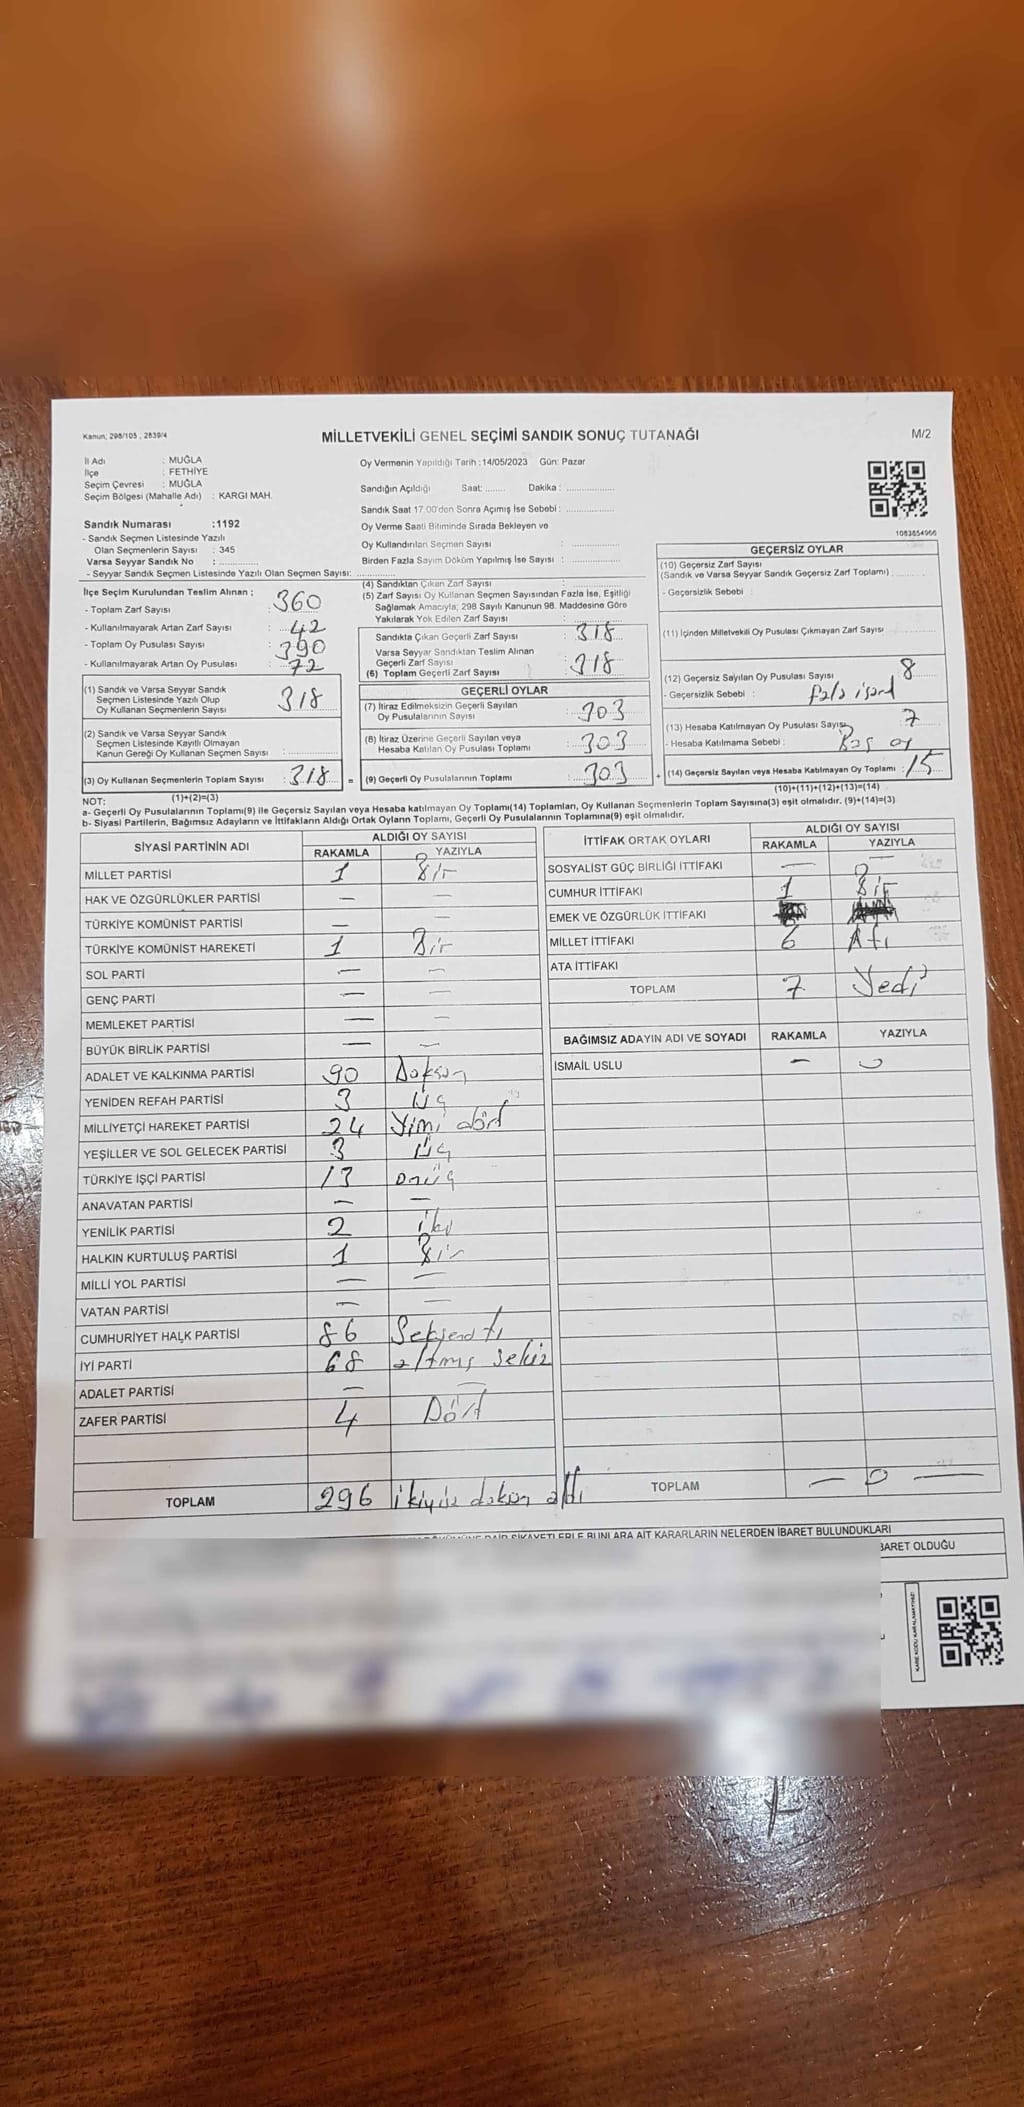 Kanun; 298/105 , 2839/4
MİLLETVEKİLİ GENEL SEÇİMİ SANDIK SONUÇ TUTANAĞI
M/2
İl Adı : MUĞLA
İlçe : FETHİYE
Seçim Çevresi : MUĞLA
Seçim Bölgesi (Mahalle Adı) : KARGI MAH.
Sandık Numarası :1192
- Sandık Seçmen Listesinde Yazılı
Olan Seçmenlerin Sayısı : 345
Varsa Seyyar Sandık No : ..............
- Seyyar Sandık Seçmen Listesinde Yazılı Olan Seçmen Sayısı: ..............
Oy Vermenin Yapıldığı Tarih :14/05/2023 Gün: Pazar
Sandığın Açıldığı Saat: ....... Dakika : ..............
Sandık Saat 17.00'den Sonra Açımış İse Sebebi : ..............
Oy Verme Saati Bitiminde Sırada Bekleyen ve
Oy Kullandırılan Seçmen Sayısı : ..............
Birden Fazla Sayım Döküm Yapılmış İse Sayısı : ..............
1083854966
İlçe Seçim Kurulundan Teslim Alınan ;
- Toplam Zarf Sayısı : 360
- Kullanılmayarak Artan Zarf Sayısı : 42
- Toplam Oy Pusulası Sayısı : 390
- Kullanılmayarak Artan Oy Pusulası : 72
(1) Sandık ve Varsa Seyyar Sandık
Seçmen Listesinde Yazılı Olup
Oy Kullanan Seçmenlerin Sayısı : 318
(2) Sandık ve Varsa Seyyar Sandık
Seçmen Listesinde Kayıtlı Olmayan
Kanun Gereği Oy Kullanan Seçmen Sayısı : ..............
(3) Oy Kullanan Seçmenlerin Toplam Sayısı : 318 =
(1)+(2)=(3)
(4) Sandıktan Çıkan Zarf Sayısı : ..............
(5) Zarf Sayısı Oy Kullanan Seçmen Sayısından Fazla İse, Eşitliği
Sağlamak Amacıyla; 298 Sayılı Kanunun 98. Maddesine Göre
Yakılarak Yok Edilen Zarf Sayısı : ..............
Sandıkta Çıkan Geçerli Zarf Sayısı : 318
Varsa Seyyar Sandıktan Teslim Alınan
Geçerli Zarf Sayısı :
(6) Toplam Geçerli Zarf Sayısı : 318
GEÇERLİ OYLAR
(7) İtiraz Edilmeksizin Geçerli Sayılan
Oy Pusulalarının Sayısı : 303
(8) İtiraz Üzerine Geçerli Sayılan veya
Hesaba Katılan Oy Pusulası Toplamı : 303
(9) Geçerli Oy Pusulalarının Toplamı : 303 +
GEÇERSİZ OYLAR
(10) Geçersiz Zarf Sayısı
(Sandık ve Varsa Seyyar Sandık Geçersiz Zarf Toplamı) : ..............
- Geçersizlik Sebebi :
(11) İçinden Milletvekili Oy Pusulası Çıkmayan Zarf Sayısı ..............
(12) Geçersiz Sayılan Oy Pusulası Sayısı : 8
- Geçersizlik Sebebi :
(13) Hesaba Katılmayan Oy Pusulası Sayısı 7
- Hesaba Katılmama Sebebi : Boş oy
(14) Geçersiz Sayılan veya Hesaba Katılmayan Oy Toplamı : 15
(10)+(11)+(12)+(13)=(14)
NOT:
a- Geçerli Oy Pusulalarının Toplamı(9) ile Geçersiz Sayılan veya Hesaba katılmayan Oy Toplamı(14) Toplamları, Oy Kullanan Seçmenlerin Toplam Sayısına(3) eşit olmalıdır. (9)+(14)=(3)
b- Siyasi Partilerin, Bağımsız Adayların ve İttifakların Aldığı Ortak Oyların Toplamı, Geçerli Oy Pusulalarının Toplamına(9) eşit olmalıdır.
SİYASİ PARTİNİN ADI ALDIĞI OY SAYISI
RAKAMLA YAZIYLA
MİLLET PARTİSİ 1 Bir
HAK VE ÖZGÜRLÜKLER PARTİSİ — —
TÜRKİYE KOMÜNİST PARTİSİ — —
TÜRKİYE KOMÜNİST HAREKETİ 1 Bir
SOL PARTİ — —
GENÇ PARTİ — —
MEMLEKET PARTİSİ — —
BÜYÜK BİRLİK PARTİSİ — —
ADALET VE KALKINMA PARTİSİ 90 Doksan
YENİDEN REFAH PARTİSİ 3 Üç
MİLLİYETÇİ HAREKET PARTİSİ 24 Yimi dört
YEŞİLLER VE SOL GELECEK PARTİSİ 3 Üç
TÜRKİYE İŞÇİ PARTİSİ 13 onüç
ANAVATAN PARTİSİ — —
YENİLİK PARTİSİ 2 iki
HALKIN KURTULUŞ PARTİSİ 1 Bir
MİLLİ YOL PARTİSİ — —
VATAN PARTİSİ — —
CUMHURİYET HALK PARTİSİ 86
İYİ PARTİ 68 altmış sekiz
ADALET PARTİSİ — —
ZAFER PARTİSİ 4 Dört
TOPLAM 296 ikiyüz doksan altı
İTTİFAK ORTAK OYLARI ALDIĞI OY SAYISI
RAKAMLA YAZIYLA
SOSYALİST GÜÇ BİRLİĞİ İTTİFAKI — —
CUMHUR İTTİFAKI 1 Bir
EMEK VE ÖZGÜRLÜK İTTİFAKI
MİLLET İTTİFAKI 6 Altı
ATA İTTİFAKI
TOPLAM 7 Yedi
BAĞIMSIZ ADAYIN ADI VE SOYADI RAKAMLA YAZIYLA
İSMAİL USLU —
TOPLAM — 0 —
ŞİKAYETLERLE BUNLARA AİT KARARLARIN NELERDEN İBARET BULUNDUKLARI
BARET OLDUĞU
KARE KODU KARALAMAYINIZ!